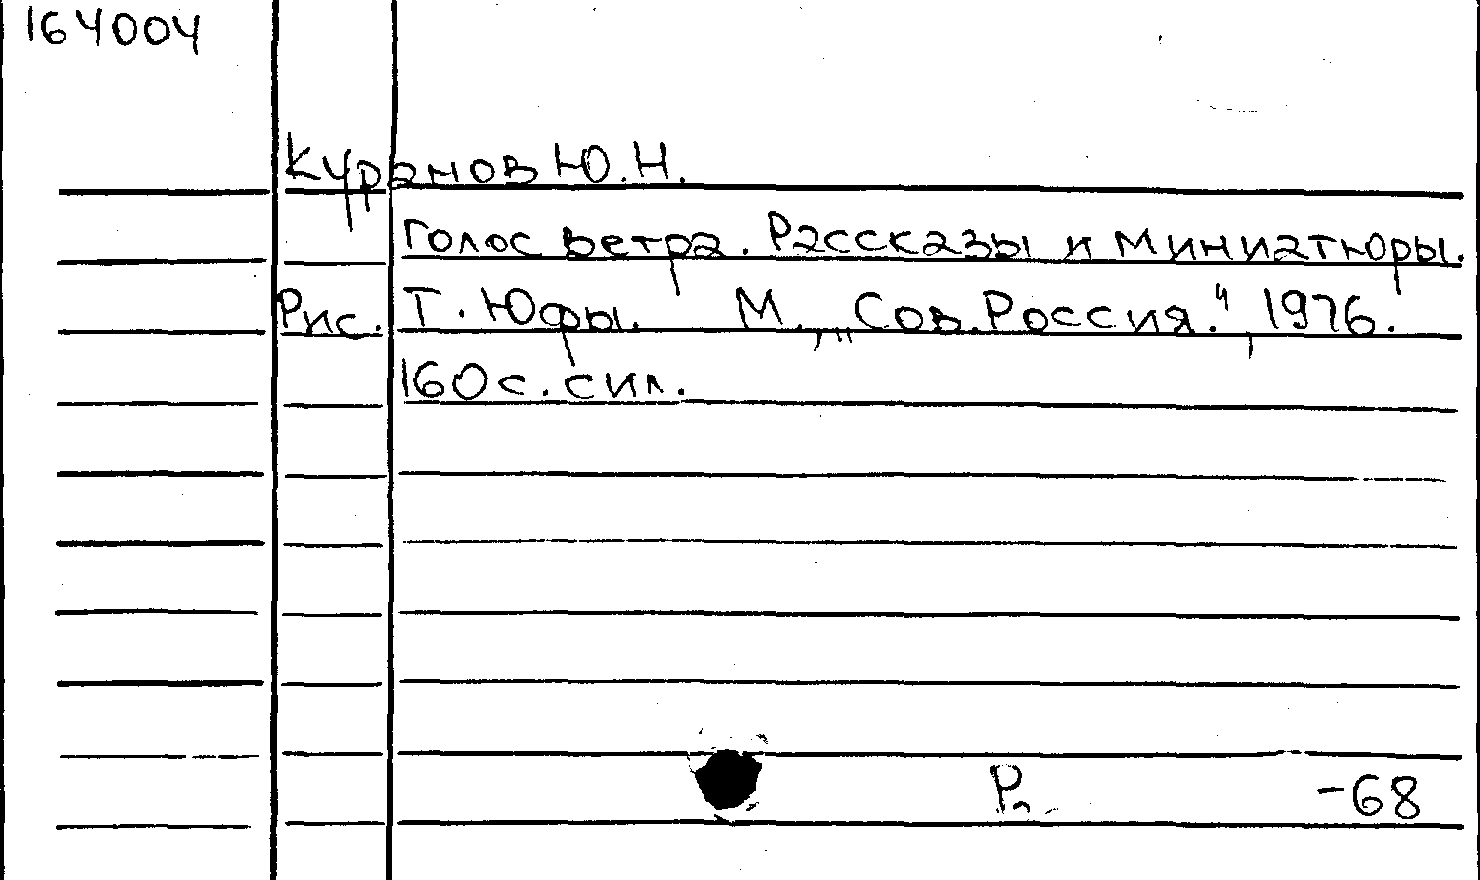 164004
Куранов Ю.Н.
Голос ветра. Рассказы и миниатюры.
Рис. Т. Юфы. М., „Сов. Россия.", 1976.
160 с. с ил.
Р. -68